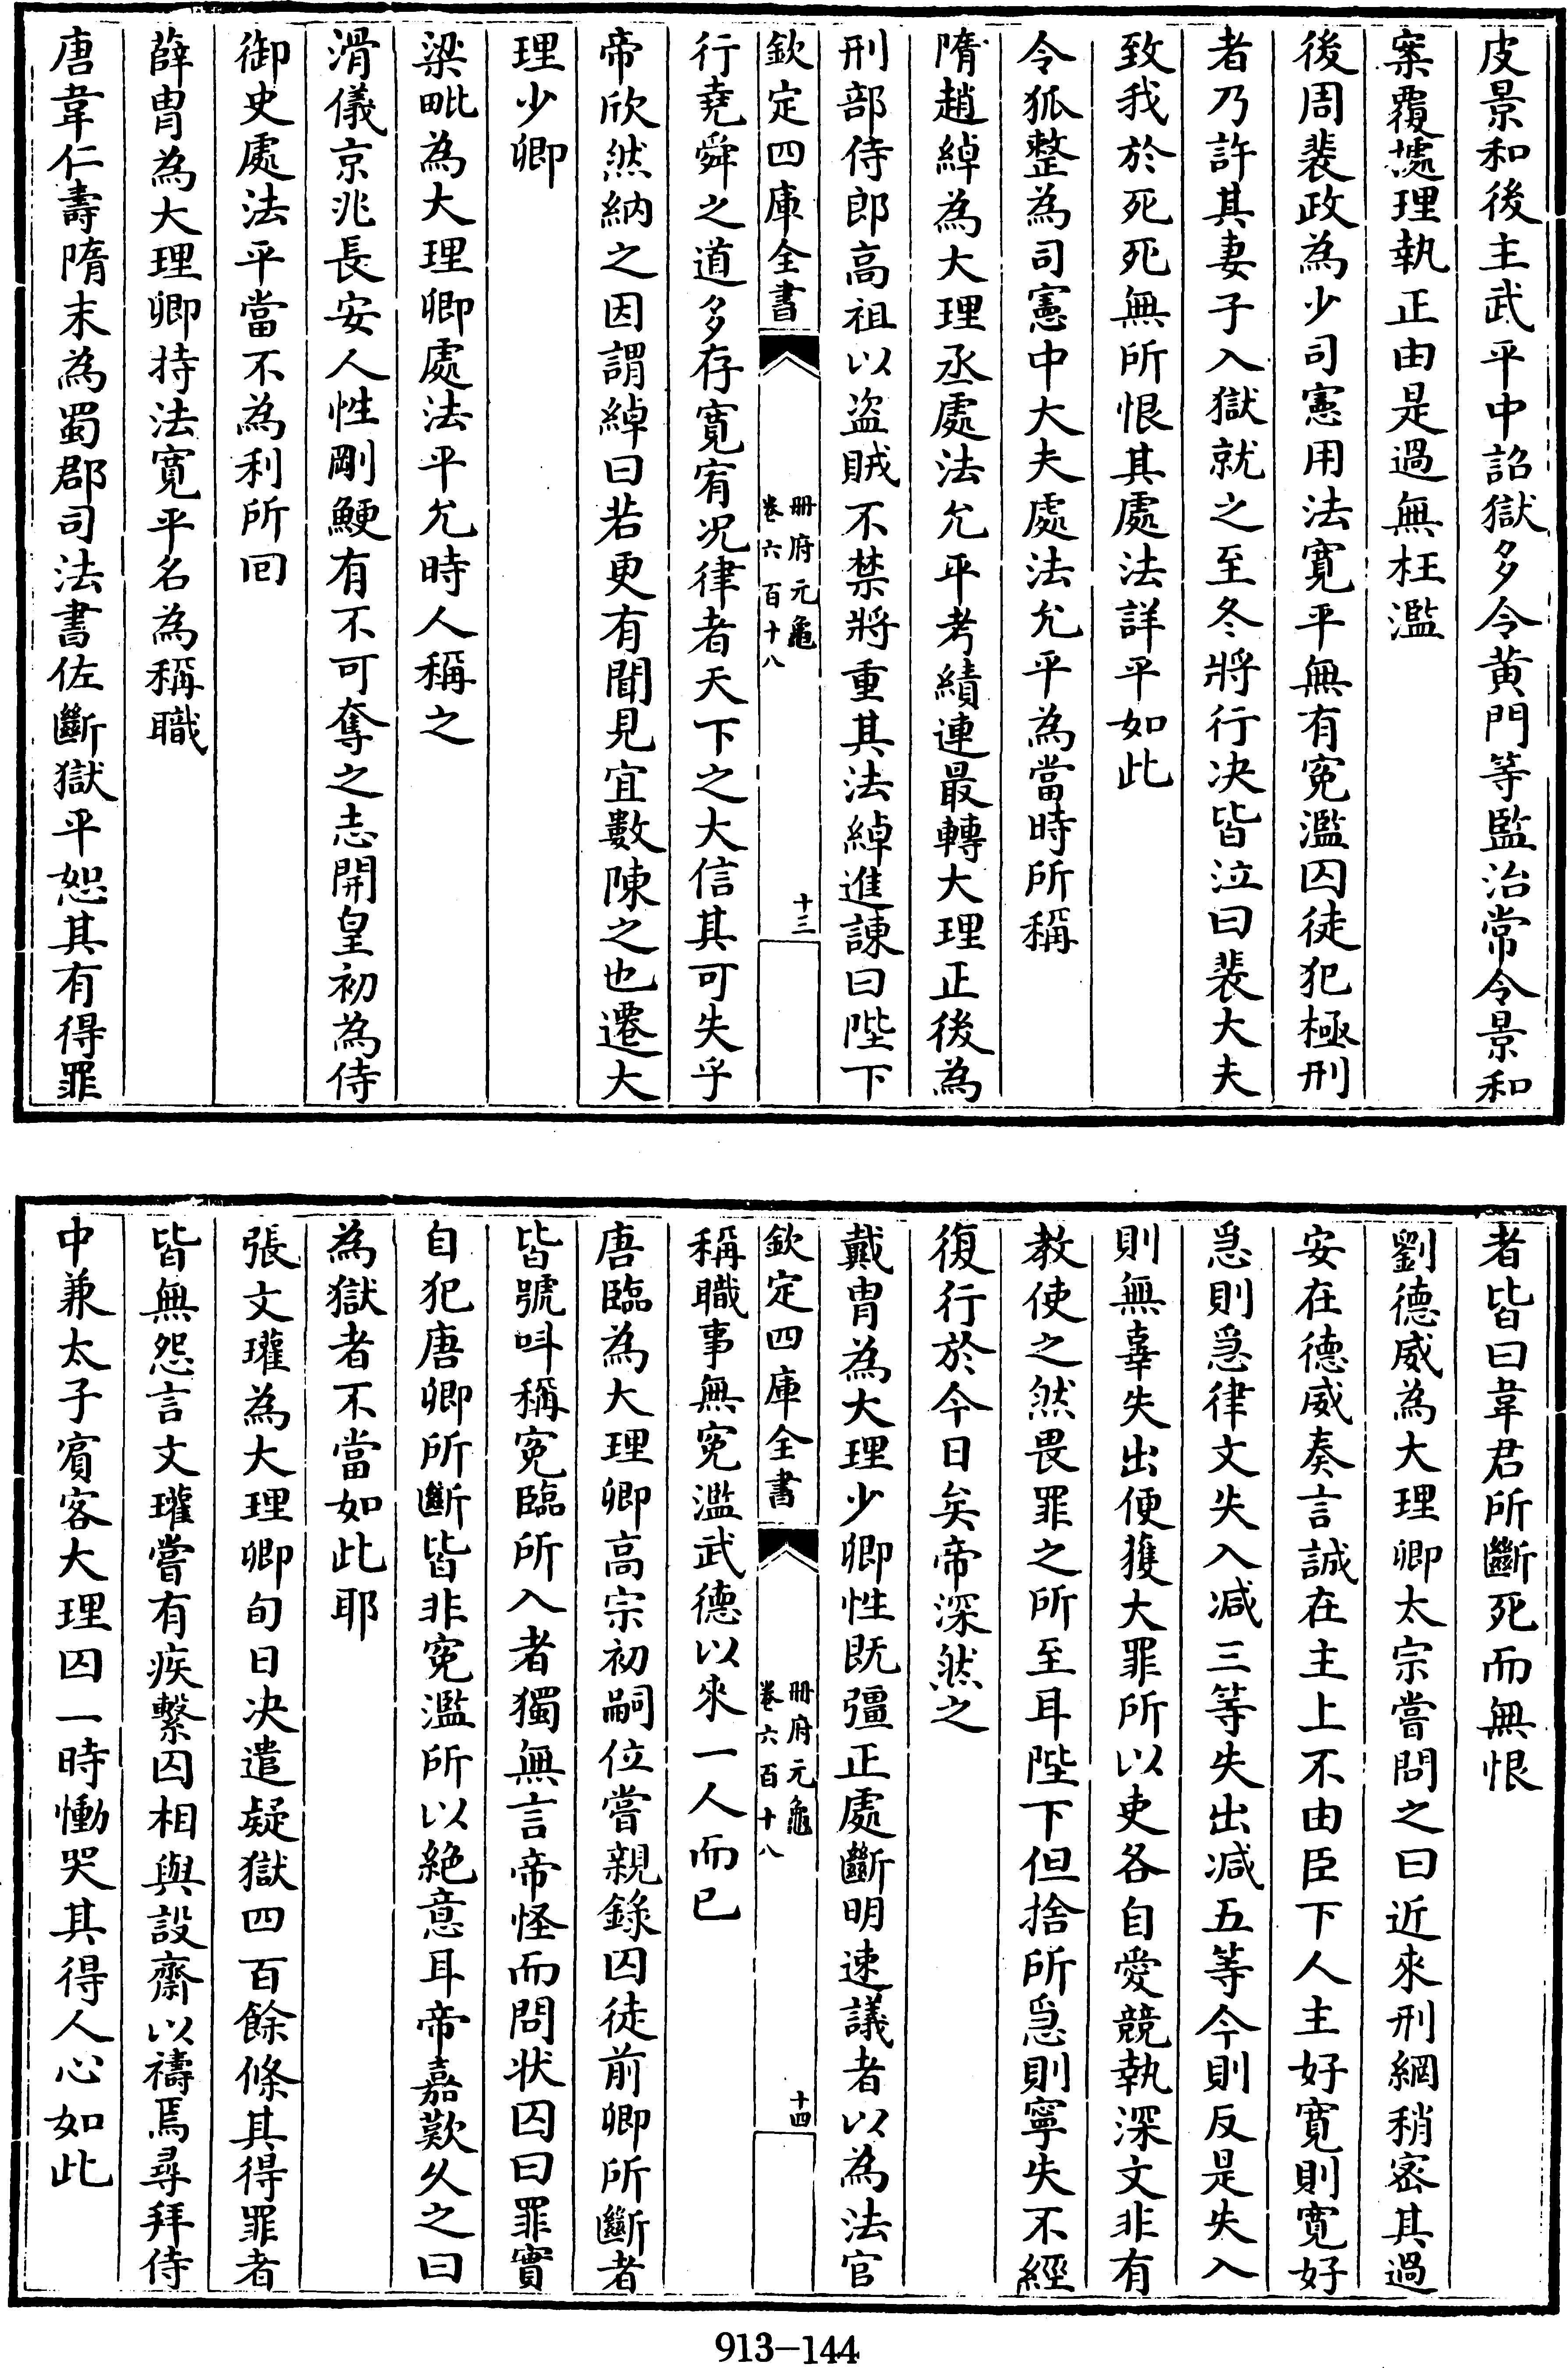 皮景和後主武平中詔獄多令黄門等監治常令景和
案覆據理執正由是過無枉濫
後周裴政為少司憲用法寛平無有寃濫囚徒犯極刑
者乃許其妻子入獄就之至冬將行决皆泣曰裴大夫
致我於死死無所恨其處法詳平如此
令狐整為司憲中大夫處法允平為當時所稱
隋趙綽為大理丞處法允平考績連最轉大理正後為
刑部侍郎高祖以盗賊不禁將重其法綽進諫曰陛下
欽定四庫全書
冊府元龜
卷六百十八
十三
行堯舜之道多存寛宥况律者天下之大信其可失乎
帝欣然納之因謂綽曰若更有聞見宜數陳之也遷大
理少卿
梁毗為大理卿處法平允時人稱之
滑儀京兆長安人性剛鯁有不可奪之志開皇初為侍
御史處法平當不為利所囘
薛胄為大理卿持法寛平名為稱職
唐韋仁壽隋末為蜀郡司法書佐斷獄平恕其有得罪
者皆曰韋君所斷死而無恨
劉德威為大理卿太宗嘗問之曰近來刑網稍密其過
安在德威奏言誠在主上不由臣下人主好寛則寛好
急則急律文失入减三等失出减五等今則反是失入
則無辜失出便獲大罪所以吏各自愛競執深文非有
教使之然畏罪之所至耳陛下但捨所急則寧失不經
復行於今日矣帝深然之
戴胄為大理少卿性既彊正處斷明速議者以為法官
欽定四庫全書
冊府元龜
卷六百十八
十四
稱職事無寃濫武德以來一人而已
唐臨為大理卿高宗初嗣位嘗親錄囚徒前卿所斷者
皆號呌稱寃臨所入者獨無言帝怪而問狀囚曰罪實
自犯唐卿所斷皆非寃濫所以絶意耳帝嘉歎久之曰
為獄者不當如此耶
張文瓘為大理卿旬日决遣疑獄四百餘條其得罪者
皆無怨言文瓘嘗有疾繫囚相與設齋以禱焉尋拜侍
中兼太子賓客大理囚一時慟哭其得人心如此
913—144